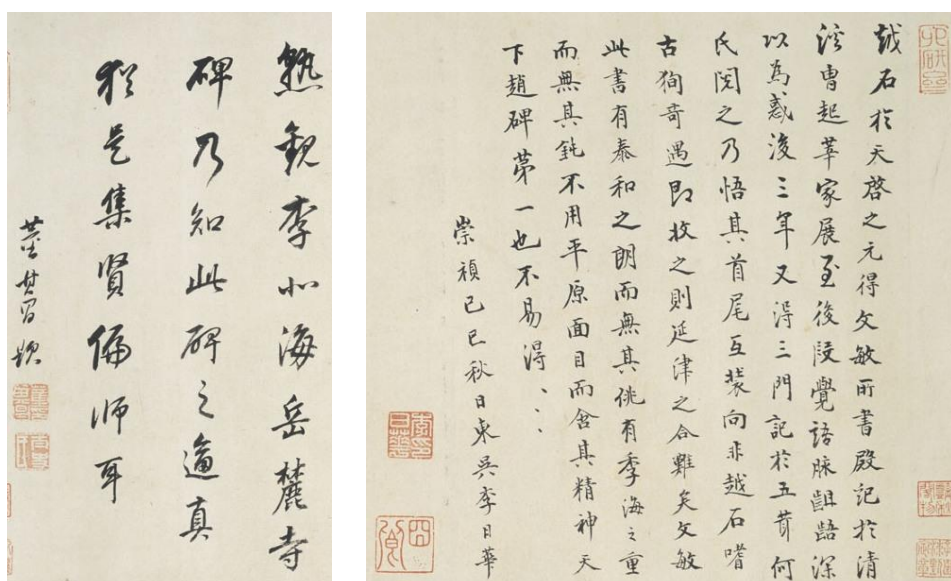 越石於天啓之元得文敏所書殿記於清
溪曹起莘家展至後段覺語脉齟齬深
以為惑後三年又得三門記於五茸何
氏閱之乃悟其首尾互裝向非越石嗜
古狥奇遇即收之則延津之合難矣文敏
此書有泰和之朗而無其佻有季海之重
而無其鈍不用平原面目而含其精神天
下趙碑第一也不易得、、
崇禎己巳秋日東吳李日華
熟觀李北海岳麓寺
碑乃知此碑之逼真
猶是集賢偏師耳
董其昌題